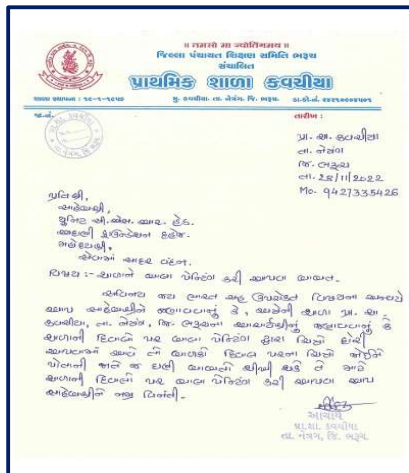 ॥ તમસો મા જ્યોતિર્ગમય ॥
જિલ્લા પંચાયત શિક્ષણ સમિતિ ભરૂચ
સંચાલિત
પ્રાથમિક શાળા કવચીયા
મુ. કવચીયા. તા. નેત્રંગ, જિ. ભરૂચ.
જા.નં.
તારીખ :
પ્રા. શા. કવચીયા
તા. નેત્રંગ
જિ. ભરૂચ
તા. 28/11/2022
Mo. 9427335426
પ્રતિ શ્રી,
સાહેબશ્રી,
યુનિટ સી. એસ. આર. હેડ.
અદાણી ફાઉન્ડેશન દહેજ.
મહોદયશ્રી,
સેવામાં સાદર વંદન.
વિષય :- શાળાને બાલા પેન્ટિંગ કરી આપવા બાબત.
સવિનય જય ભારત સહ ઉપરોક્ત વિષયના અન્વયે
આપ સાહેબશ્રીને જણાવવાનું કે, અમોની શાળા પ્રા. શા
કવચીયા, તા. નેત્રંગ, જિ. ભરૂચના આચાર્યશ્રીનું જણાવવાનું કે
શાળાની દિવાલો પર બાલા પેન્ટિંગ દ્વારા ચિત્રો દોરી
આપવામાં આવે તો બાળકો દિવાલ પરના ચિત્રો જોઈને
પોતાની જાતે જ ઘણી બાબતો શીખી શકે તે માટે
શાળાની દિવાલો પર બાલા પેન્ટિંગ કરી આપવા આપ
સાહેબશ્રીને નમ્ર વિનંતી.
આચાર્ય
પ્રા.શા. કવચીયા
તા. નેત્રંગ, જિ. ભરૂચ.